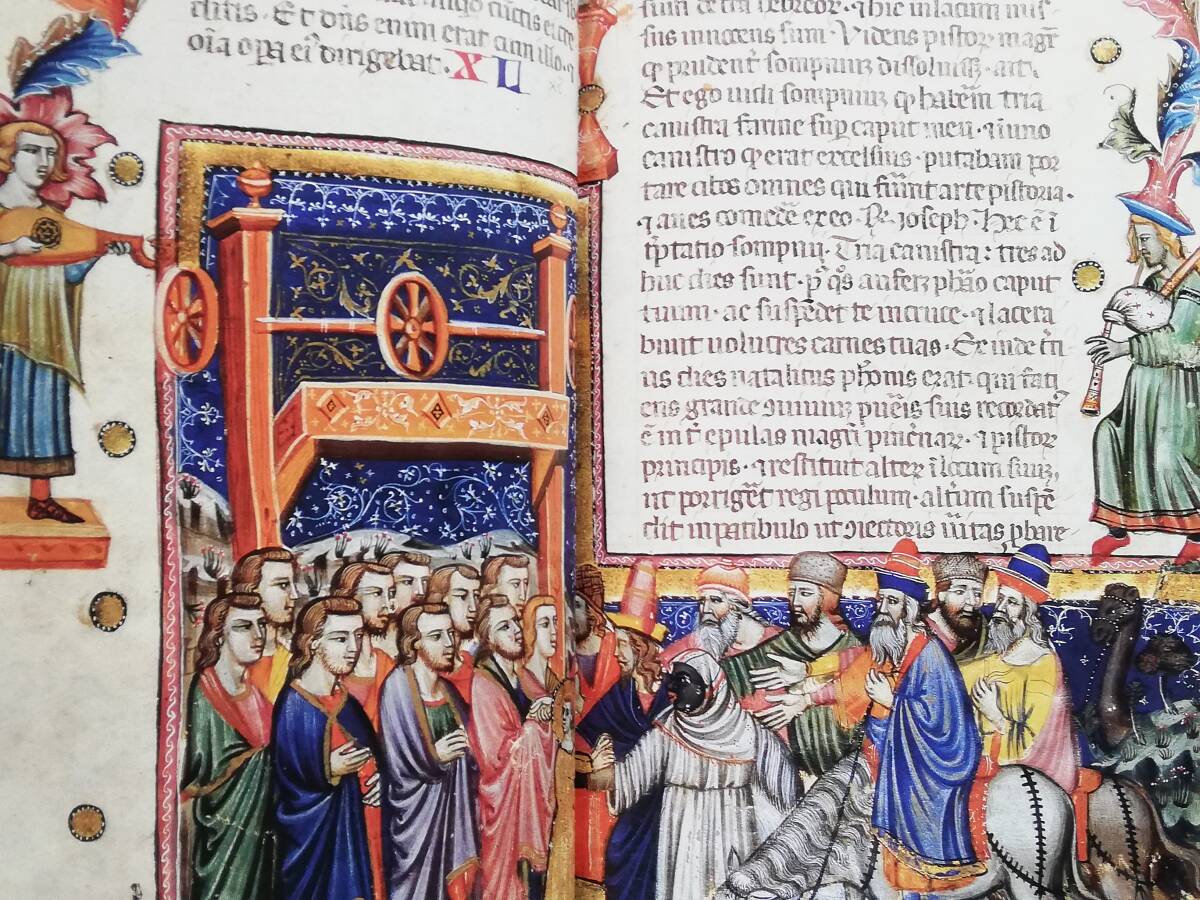 ditis. Et dn̄s enim erat cum illo. ⁊
oīa oꝑa eī dirigebat. XL
sum de tr̄a hebreoꝝ. ⁊hic in lacum mis
sus innocens sum. Videns pistoꝝ magr̄
ꝙ prudent̄ sompniuꝫ dissoluiss̄. ait.
Et ego uidi sompniuꝫ ꝙ habem̄ tria
canistra farine suꝑ caput meū. ⁊in uno
canistro ꝙ erat excelsius. putabam por
tare cibos omnes qui fiūnt arte pistoria.
⁊ aues comedē ex eo. Rn̄. Ioseph. Hec ē ī
tꝑtatio sompnij. Tria canistra: tres ad
huc dies sunt. ꝑ q̄s auferꝫ pharō caput
tuum. ac suspēdet te in cruce. ⁊ lacera
bunt uolucres carnes tuas. Ex inde t̄ti
us dies natalitius ph̄onis erat. qui faci
ens grande ꝯuiuiuꝫ pueīs suis recordat᷒
ē int̄ epulas magr̄i pinc̄naꝝ. ⁊ pistoꝝ
principis. ⁊ restituit alteꝝ ī locum suuꝫ,
ut porriger̄et regi poculum. alt̄um suspē
dit in patibulo ut ꝯiectoris ūitas ꝓbare